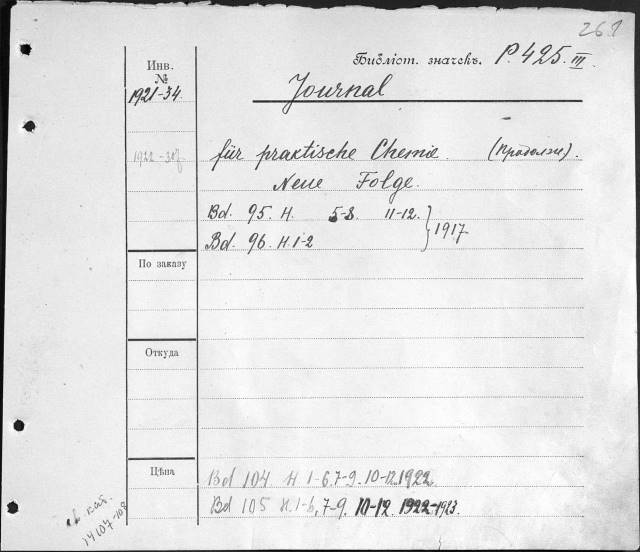 268
Библіот. значекъ. P. 425. III.
Инв.
№
1921-34.
Journal
1922-307
für praktische Chemie. (Продолж).
Neue Folge.
Bd. 95. H. 5-8. 11-12.
Bd. 96. H. 1-2
1917
По заказу
Откуда
Цѣна
Bd 104. H 1-6, 7-9. 10-12. 1922.
Bd 105 H. 1-6, 7-9. 10-12. 1922-1923.
кат.